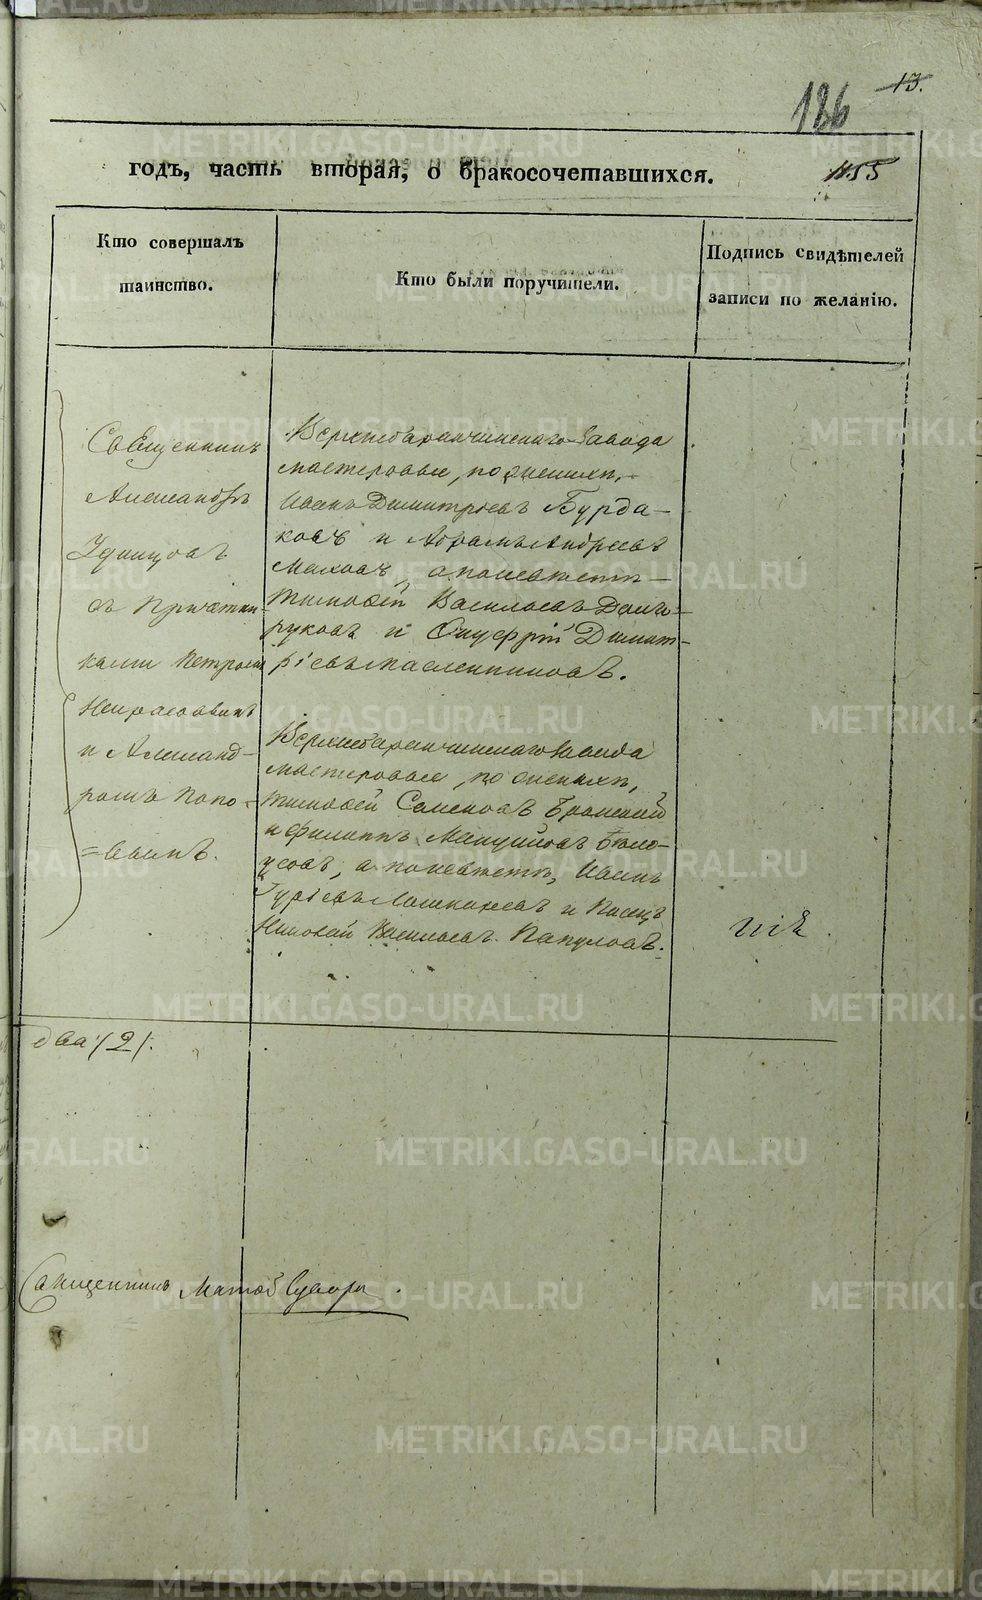 13.
186
годъ, часть вторая, о бракосочетавшихся.
1155
Кто совершалъ
таинство.
Кто были поручители.
Подпись свидѣтелей
записи по желанію.
Священникъ
Александръ
Удинцовъ
съ Причетни-
ками Петромъ
Некрасовымъ
и Александ-
ромъ Попо-
=вымъ.
Верхнебаранчинскаго завода
мастеровые, по женихѣ,
Иванъ Димитріевъ Бурда-
ковъ и Абрамъ Андреевъ
а по невѣстѣ
Тимофей Васильевъ Долго-
руковъ и Онуфрій Димит-
ріевъ Масленниковъ.
Верхнебаранчинскаго завода
мастеровые, по женихѣ,
Тимофей Семеновъ
и Филиппъ
а по невѣстѣ, Иванъ
Гурьевъ и Писецъ
Николай Васильевъ Папуловъ.
два /2/.
Священникъ
METRIKI.GASO-URAL.RU